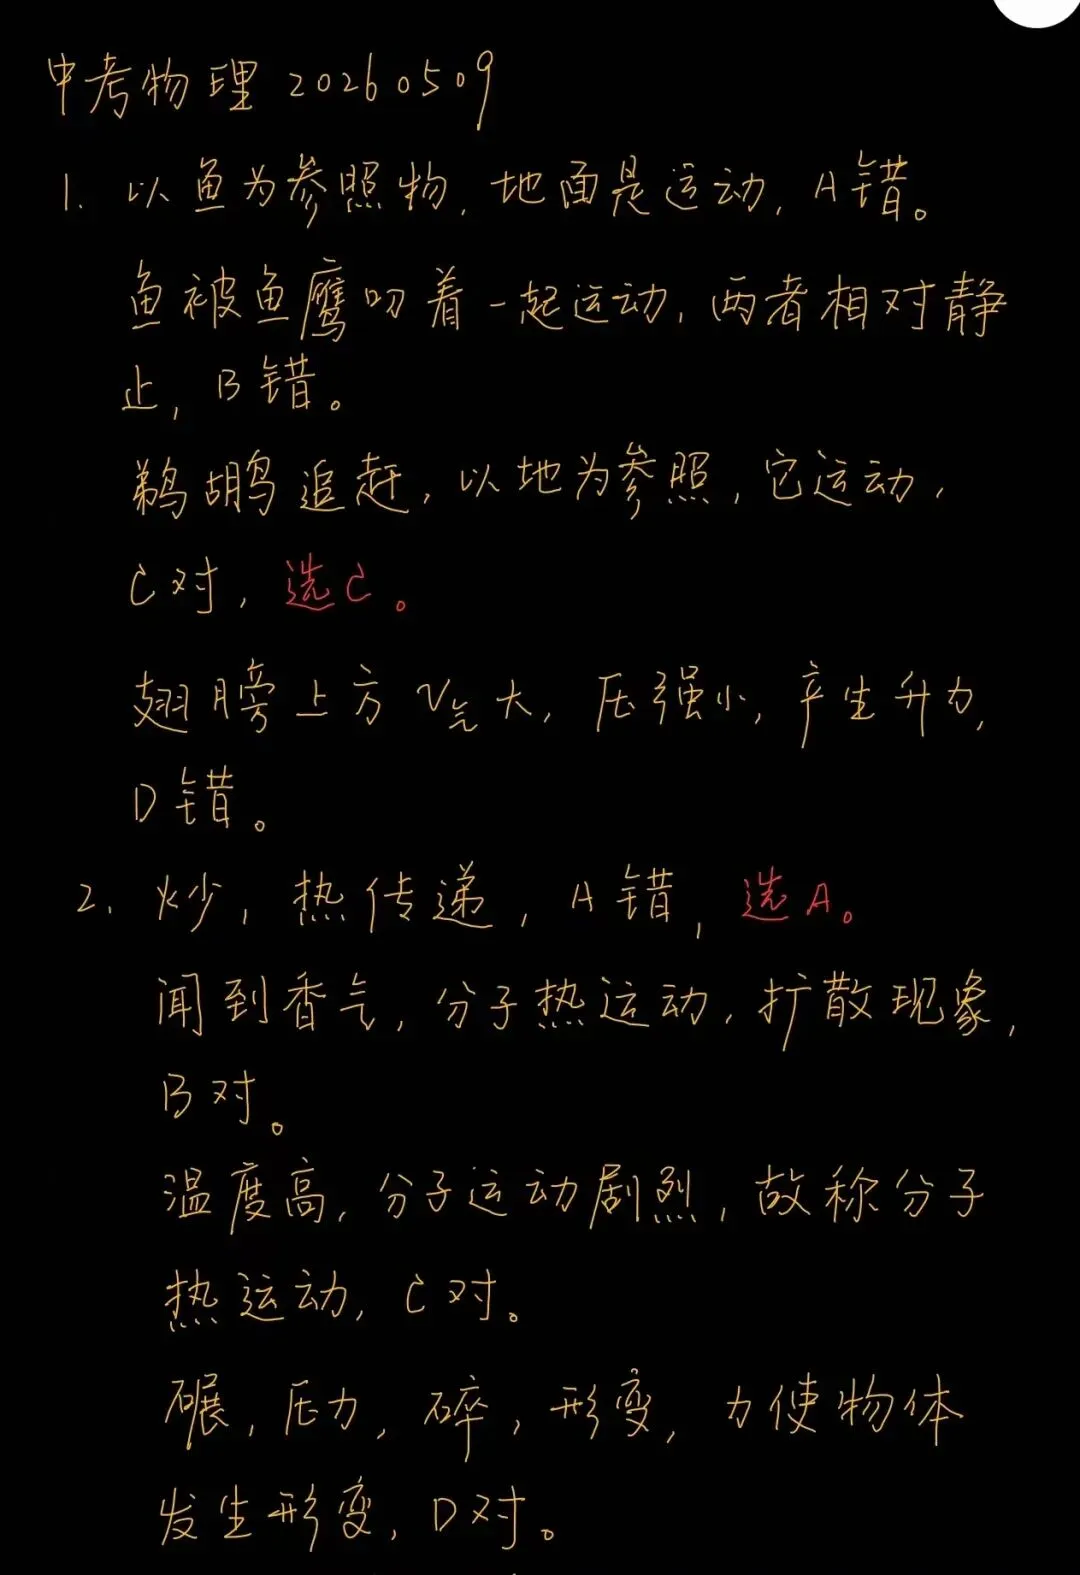 中考物理 20260509
1. 以鱼为参照物, 地面是运动, A错。
鱼被鱼鹰叼着一起运动, 两者相对静
止, B错。
鹈鹕鸟追赶, 以地为参照, 它运动,
C对, 选C。
翅膀上方 V气大, 压强小, 产生升力,
D错。
2. 炒, 热传递, A错, 选A。
闻到香气, 分子热运动, 扩散现象,
B对。
温度高, 分子运动剧烈, 故称分子
热运动, C对。
碾, 压力, 碎, 形变, 力使物体
发生形变, D对。